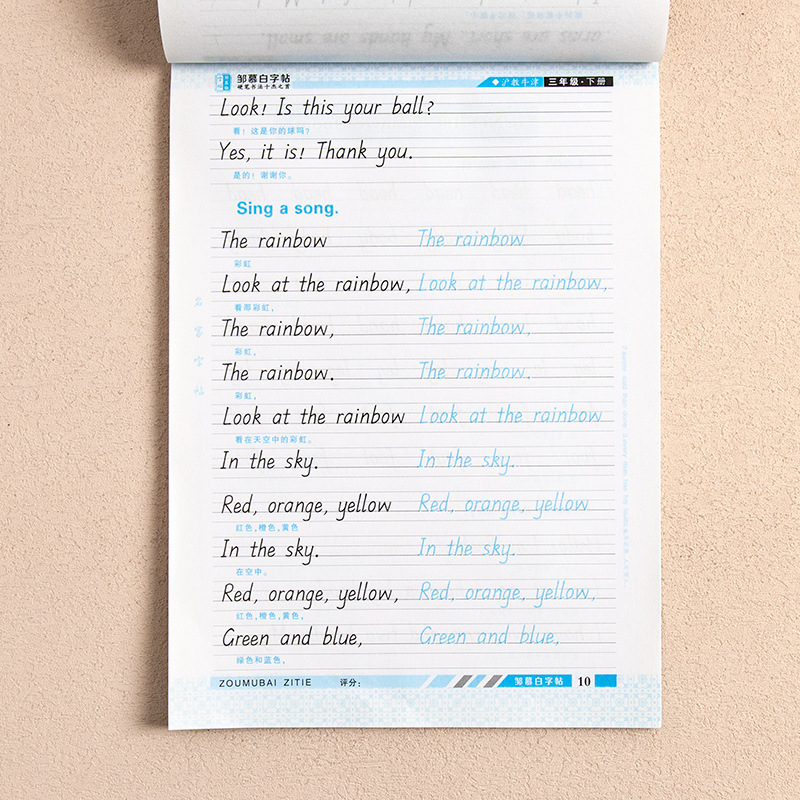 邹慕白字帖
硬笔书法十杰之首
沪教牛津 三年级·下册
Look! Is this your ball?
看！这是你的球吗？
Yes, it is! Thank you.
是的！谢谢你。
Sing a song.
The rainbow The rainbow
彩虹
Look at the rainbow, Look at the rainbow,
看那彩虹，
The rainbow, The rainbow,
彩虹，
The rainbow. The rainbow.
彩虹，
Look at the rainbow Look at the rainbow
看在天空中的彩虹。
In the sky. In the sky.
Red, orange, yellow Red, orange, yellow
红色，橙色，黄色
In the sky. In the sky.
在空中。
Red, orange, yellow, Red, orange, yellow,
红色，橙色，黄色，
Green and blue, Green and blue,
绿色和蓝色，
名家字帖
ZOUMUBAI ZITIE 评分： 邹慕白字帖 10